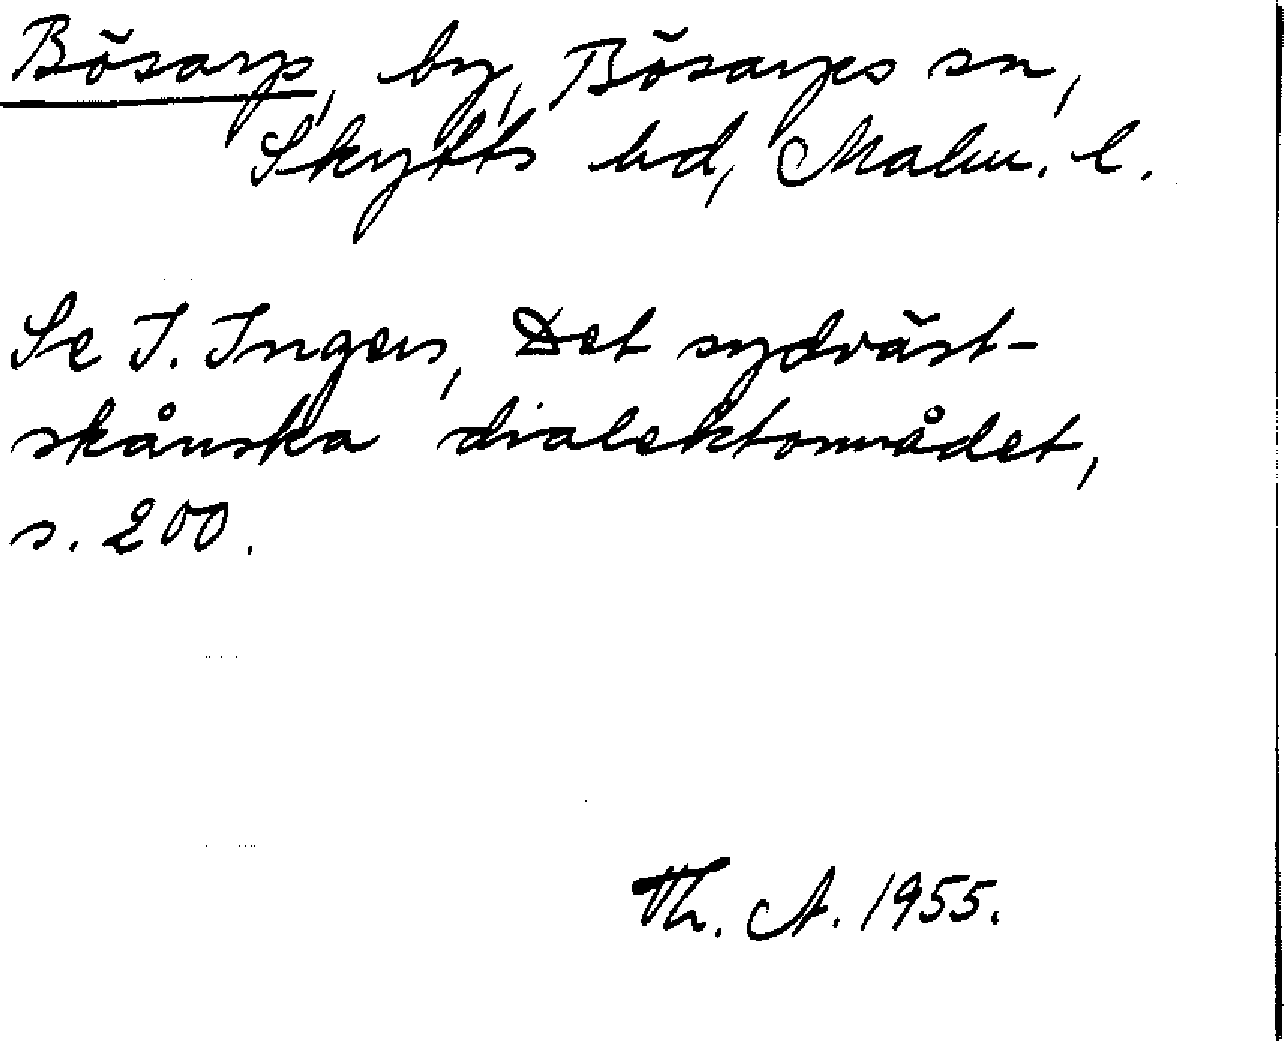 Bösarp, by, Bösarps sn,
Skytts hd, Malm. l.
Se I. Ingers, Det sydväst-
skånska dialektområdet,
s. 200.
Th. A. 1955.